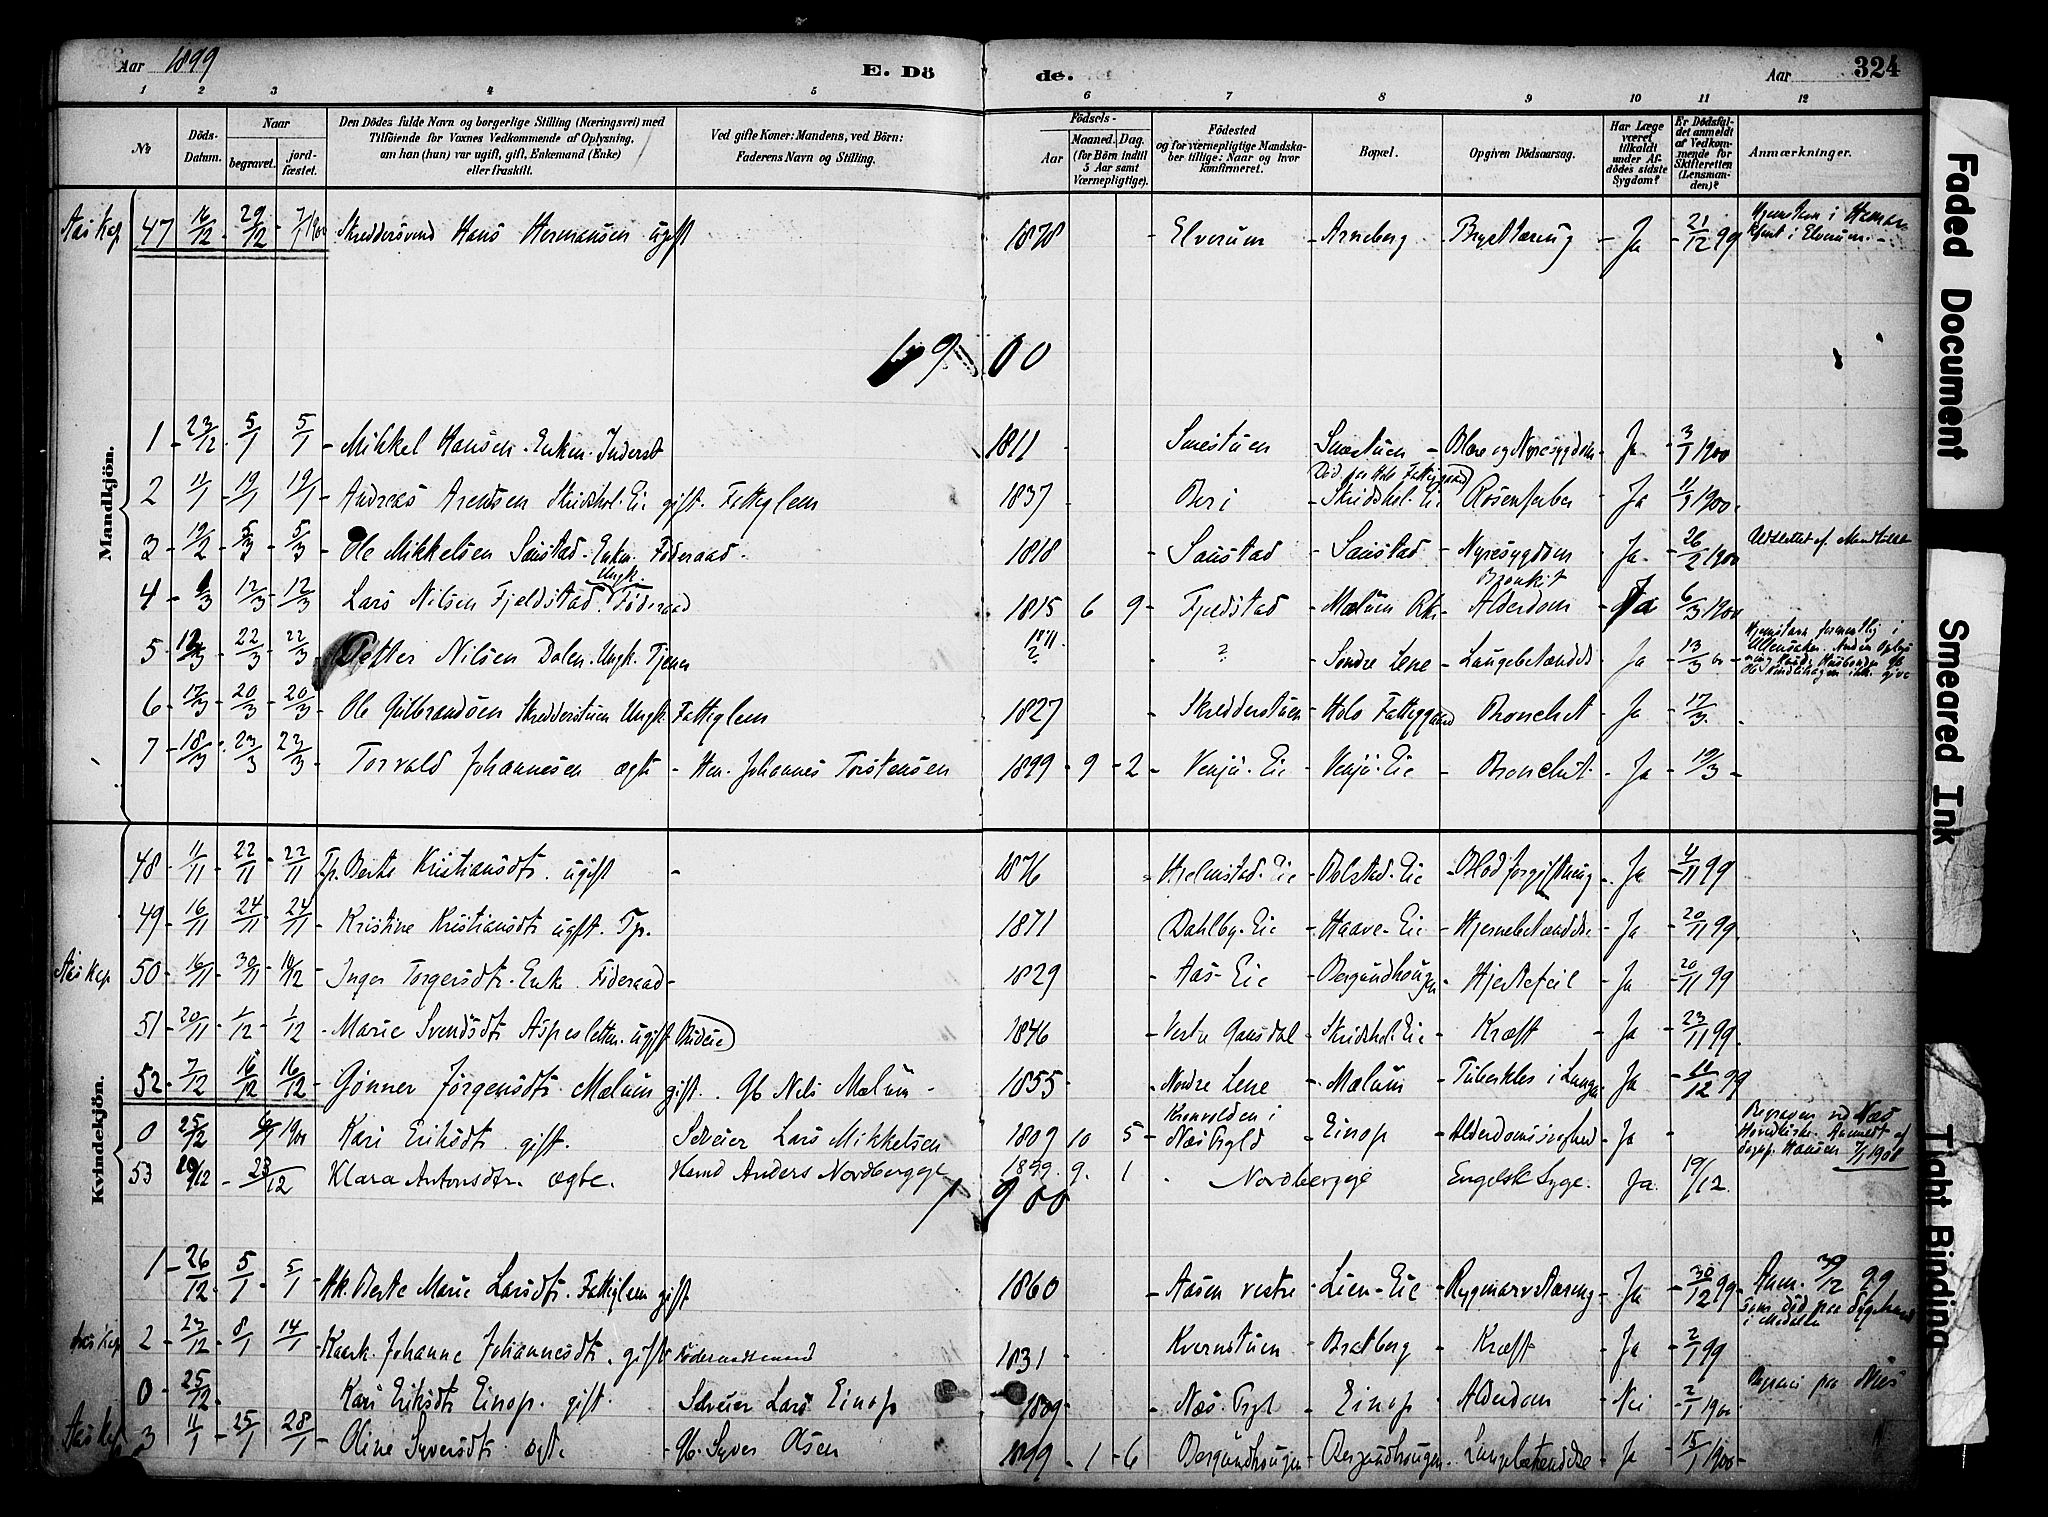 Aar 1899 E. Dö de. Aar 324
1 2 3 4 5 6 7 8 9 10 11 12
№ Döds-Datum. Naar begravet. jord-fæstet. Den Dödes fulde Navn og borgerlige Stilling (Næringsvei) med Tilföiende for Voxnes Vedkommende af Oplysning, om han (hun) var ugift, gift, Enkemand (Enke) eller fraskilt. Ved gifte Koner: Mandens, ved Börn: Faderens Navn og Stilling. Födsels- Aar Maaned. Dag. (for Börn indtil 5 Aar samt Værnepligtige). Födested og for værnepligtige Mandskaber tillige: Naar og hvor konfirmeret. Bopæl. Opgiven Dödsaarsag. Har Læge været tilkaldt under Afdödes sidste Sygdom? Er Dödsfaldet anmeldt af Vedkommende for Skifteretten (Lensmanden)? Anmærkninger.
Mandkjön.
Aas Kap 47 16/12 29/12 7/1 1900 Skreddersvend Hans Hermansen ugift 1878 Elverum Arneberg Ja 21/12 99
1900
1 23/12 5/1 5/1 Mikkel Hansen Enkem. Inderst 1811 Smestuen Smestuen Blære og Nyresygdom Ja 3/1 1900
2 11/1 19/1 19/1 Andreas Arentsen Skridshol. Eie gift. Fattiglem 1837 Skridshol. Eie Rosenfeber Ja 1900
3 19/2 5/3 5/3 Ole Mikkelsen Saustad Enkm. Föderaad 1818 Saustad Saustad Nyresygdom Ja 26/2 1900
4 6/3 12/3 12/3 Lars Nilsen Fjeldstad Ungk. Föderaad 1815 6 9 Fjeldstad Mælum Bronkit Alderdom Ja 6/3 1900
5 12/3 22/3 22/3 Petter Nilsen Dalen Ungk. Tjener ? Söndre Lene Lungebetændelse Ja 13/3
6 17/3 20/3 20/3 Ole Gulbrandsen Skredderstuen Ungk. Fattiglem 1827 Skredderstuen Hols Fattiggaard Bronchit Ja 17/3
7 18/3 23/3 23/3 Torvald Johannesen ægte Hsm. Johannes Torstensen 1899 9 2 Venju. Eie Venju. Eie Bronchit Ja 19/3
Kvindekjön.
48 11/11 22/11 22/11 Tp. Berte Kristiansdtr. ugift 1876 Hjelmstad. Eie Bolstad. Eie Blodforgiftning Ja 99
49 16/11 24/11 24/11 Kristine Kristiansdtr. ugift. Tp. 1871 Dahlby. Eie Haave. Eie Hjernebetændelse Ja 20/11 99
Aas Kap 50 16/11 30/11 10/12 Inger Torgersdtr. Enke Föderaad 1829 Aas Eie Bergundhougen Hjertefeil Ja 20/11 99
51 20/11 1/12 1/12 Marie Svendsdtr. Aspesletten ugift Budeie 1846 Skridshol. Eie Kræft Ja 23/11 99
52 7/12 16/12 16/12 Gønner Jørgensdtr. Mælum gift. Gb. Nils Mælum 1855 Nordre Lene Mælum Tuberkler i Lungen Ja 11/12 99
0 25/12 6/1 1900 Kari Eriksdtr. gift. Selveier Lars Mikkelsen 1809 10 5 i Næs Prgld Einop Alderdomssvaghed Ja Begraven ved Næs Hovedkirke. Anmeldt af
53 19/12 23/12 Klara Antonsdtr. ægte. Hsmd Anders Nordbergeie 1899 9 1 Nordbergeie Engelsk Syge. Ja 19/12
1900
1 26/12 5/1 5/1 Hk. Berte Marie Larsdtr. Fattiglem gift 1860 Aasen vestre Lien. Eie Rygmarvstæring Ja 30/12 99 Anm. 30/12 99 som död paa Sygehuset
Aas Kap 2 23/12 8/1 14/1 Kaark. Johanne Johannesdtr. gift Föderaadsmand 1831 Kvernstuen Bratberg Kræft Ja 2/1 99
0 25/12 Kari Eriksdtr. Einop. gift. Selveier Lars Einop 1809 Næs Prgl Einop Alderdom Nei 2/1 1900 paa Næs
Aas Kap 3 11/1 25/1 28/1 Oline Syversdtr. ægte. Gb. Syver Olsen 1899 1 6 Bergundhougen Bergundhougen Lungebetændelse Ja 15/1 1900
Faded Document
Smeared Ink
Tight Binding